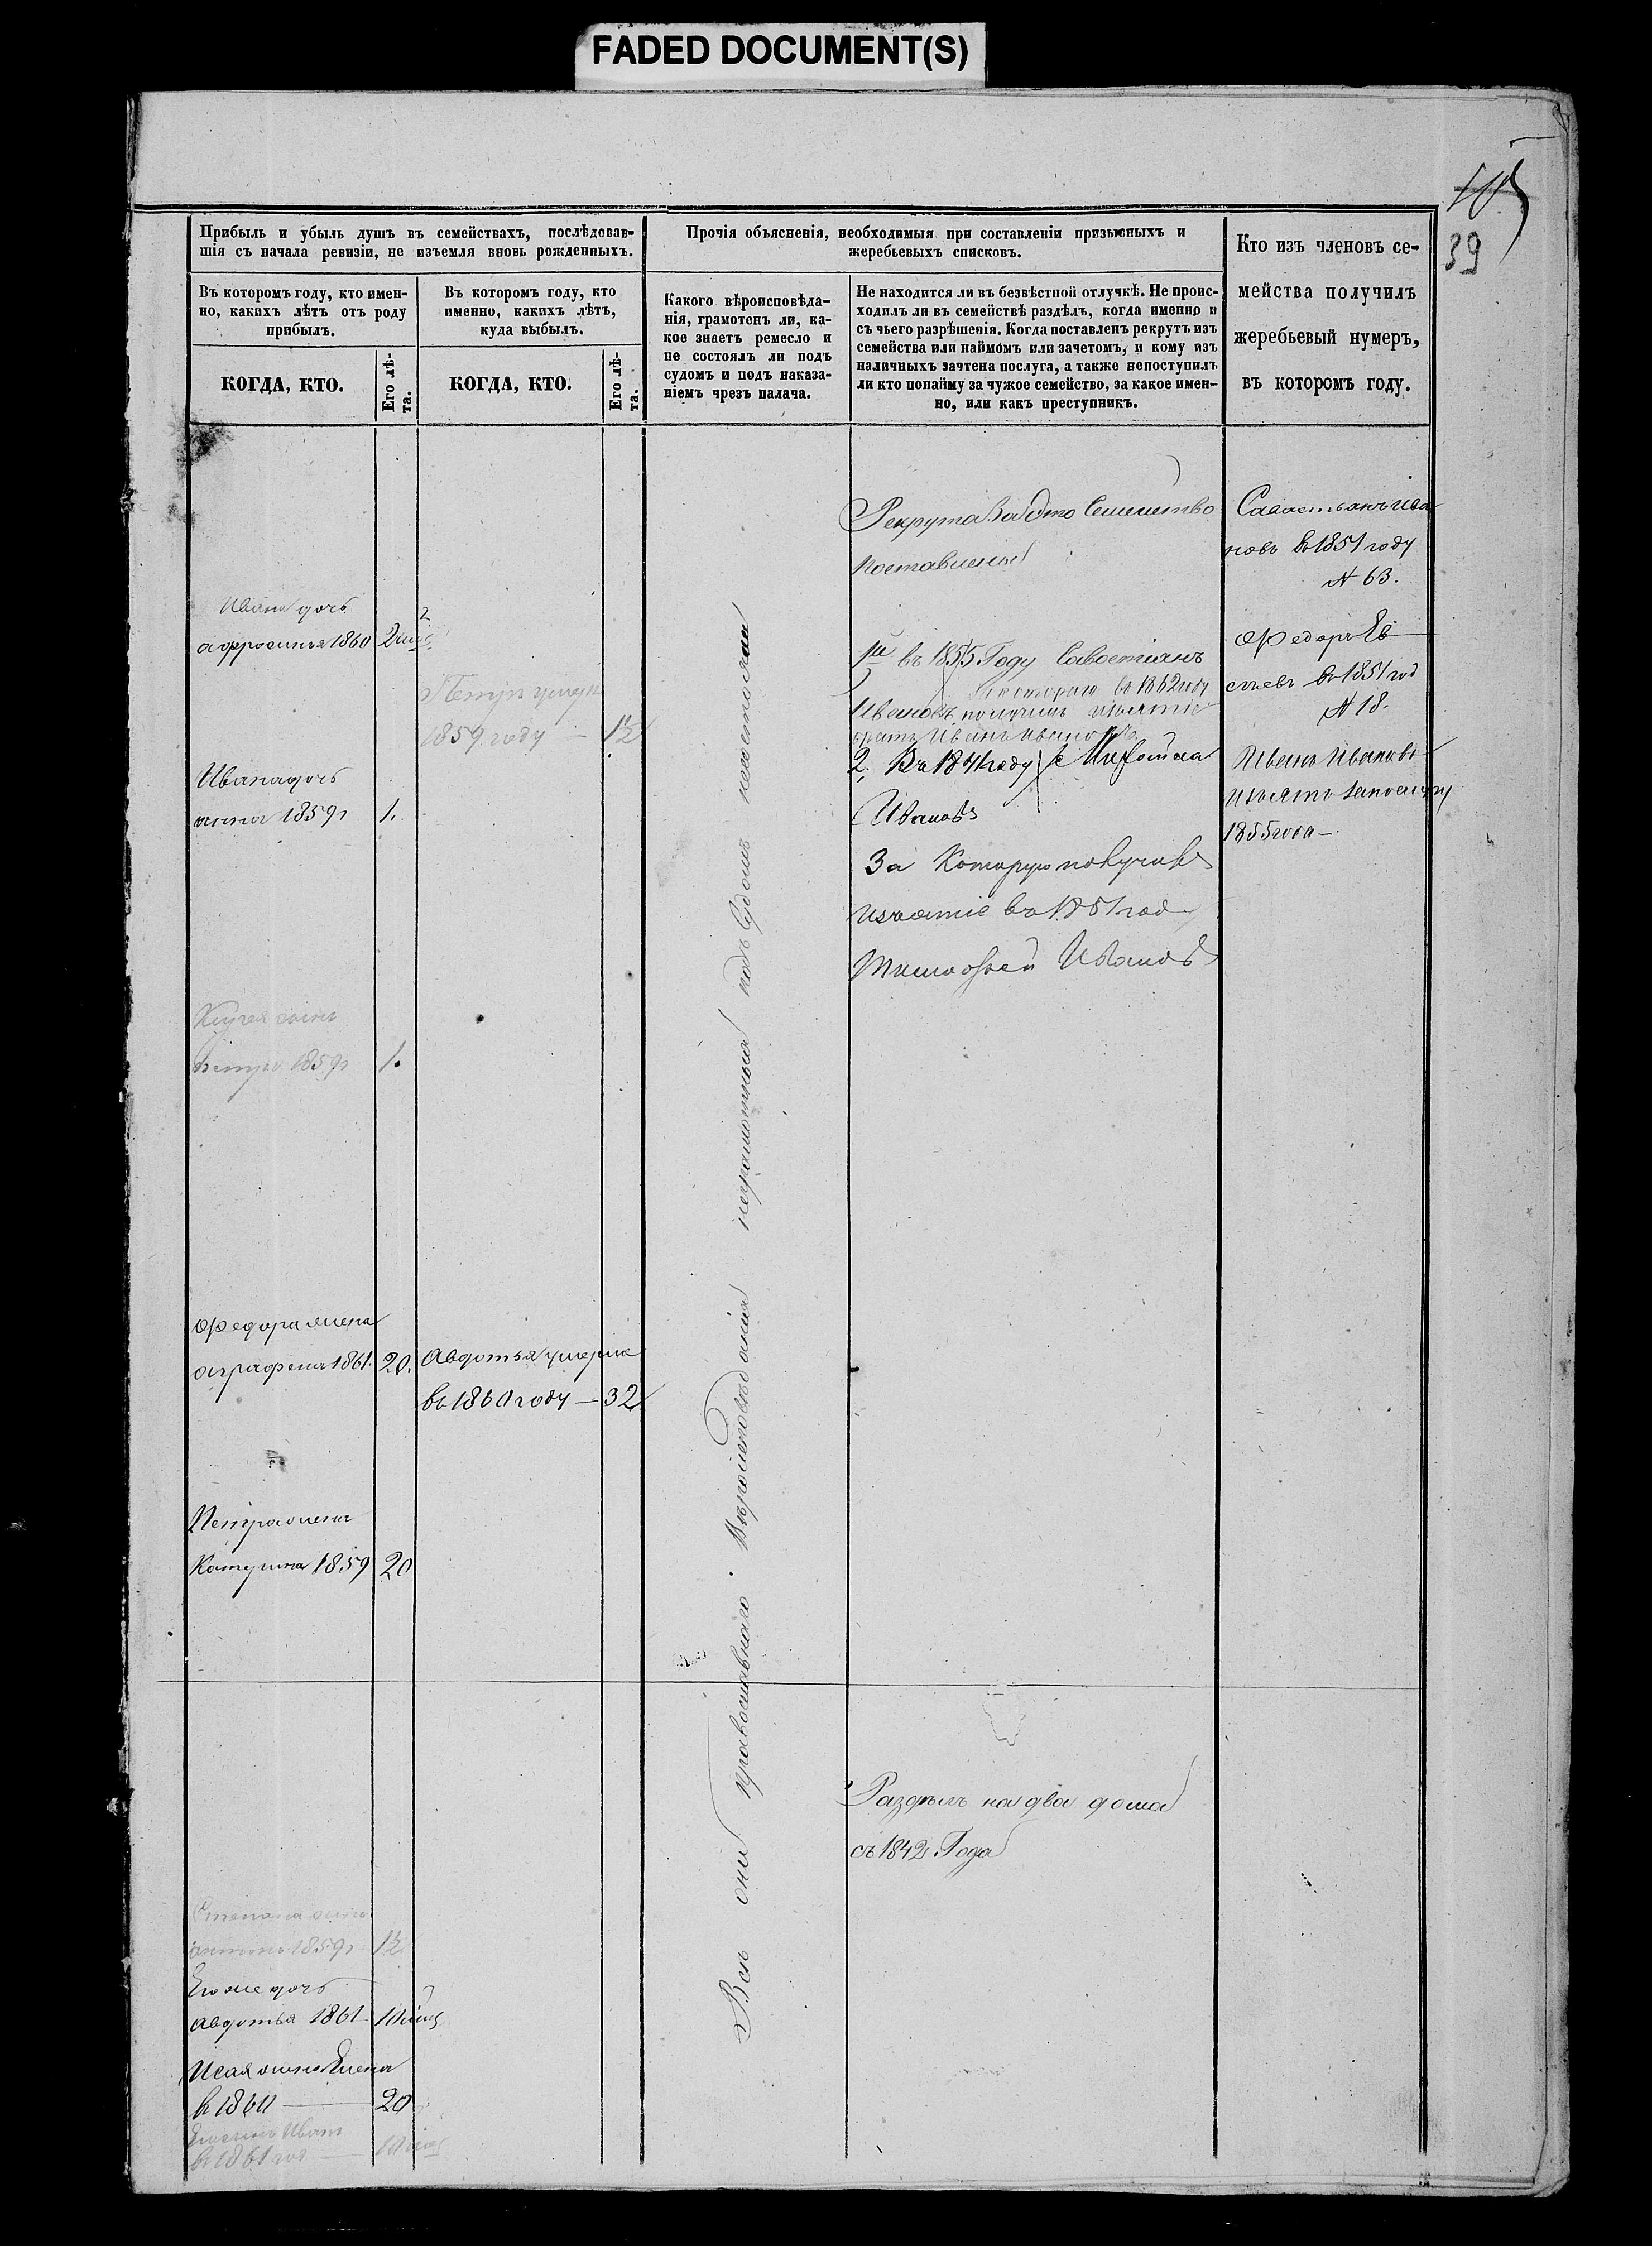 FADED DOCUMENT(S)
39
Прибыль и убыль душъ въ семействахъ, послѣдовав-
шія съ начала ревизіи, не изъемля вновь рожденныхъ.
Въ которомъ году, кто имен-
но, какихъ лѣтъ отъ роду
прибылъ.
Въ которомъ году, кто
именно, какихъ лѣтъ,
куда выбылъ.
КОГДА, КТО.
Его лѣ-
та.
КОГДА, КТО.
Его лѣ-
та.
Прочія объясненія, необходимыя при составленіи призывныхъ и
жеребьевыхъ списковъ.
Какого вѣроисповѣда-
нія, грамотенъ ли, ка-
кое знаетъ ремесло и
не состоялъ ли подъ
судомъ и подъ наказа-
ніемъ чрезъ палача.
Не находится ли въ безвѣстной отлучкѣ. Не проис-
ходилъ ли въ семействѣ раздѣлъ, когда именно и
съ чьего разрѣшенія. Когда поставленъ рекрутъ изъ
семейства или наймомъ или зачетомъ, и кому изъ
наличныхъ зачтена послуга, а также непоступилъ
ли кто понайму за чужое семейство, за какое имен-
но, или какъ преступникъ.
Кто изъ членовъ се-
мейства получилъ
жеребьевый нумеръ,
въ которомъ году.
Ивана дочь
афросинья 1860
Петръ умеръ
1859 году — 1½
Ивана дочь
анна 1859 г 1.
сынъ
Петръ 1859 г 1.
Федора жена
аграфена 1861. 20.
Авдотья умерла
въ 1860 году — 32
Петра жена
Катерина 1859 20
Степана сынъ
антонъ 1859 г 1½
Его же дочь
авдотья 1861
Исая жена Елена
в 1860 — 20
Иванъ
в 1861 год
Всѣ они православнаго вѣроисповѣданія неграмотныя подъ Судомъ несостояли
Рекрута За Это Семейство
поставлены
1й въ 1855 Году Савостіянъ
за которую въ 1862 году
Ивановъ получилъ изъятіе
братъ Иванъ Ивановъ
2. Въ 1841 году
Ивановъ
За Которую получилъ
изъятіе въ 1851 год
Тимофей Ивановъ
Раздѣлъ на два дома
съ 1842 Года
Савостьянъ Ива
новъ въ 1851 году
№ 63.
Федоръ Ев
сѣевъ въ 1851 год
№ 18.
Иванъ Ивановъ
изъятъ
1855 года —